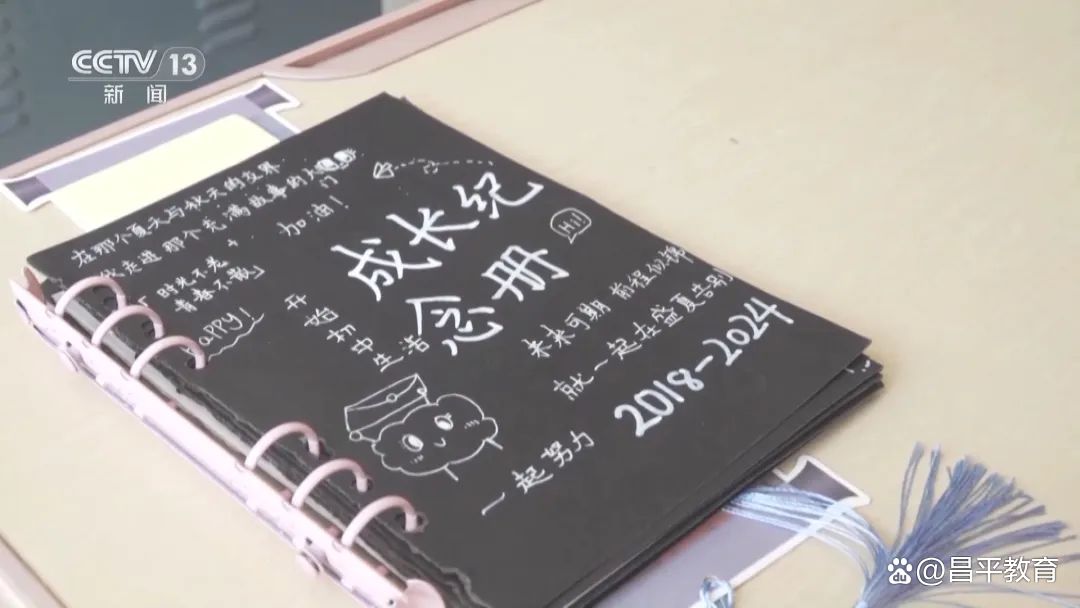 CCTV 13
新闻
在那个夏天与秋天的交界
走进那个充满故事的大门
加油！
「时光不老
青春不散」
HAPPY!
成长纪
念册
Hi!
开始初中生活
未来可期 前程似锦
就一起在盛夏告别
2018-2024
一起努力
@昌平教育